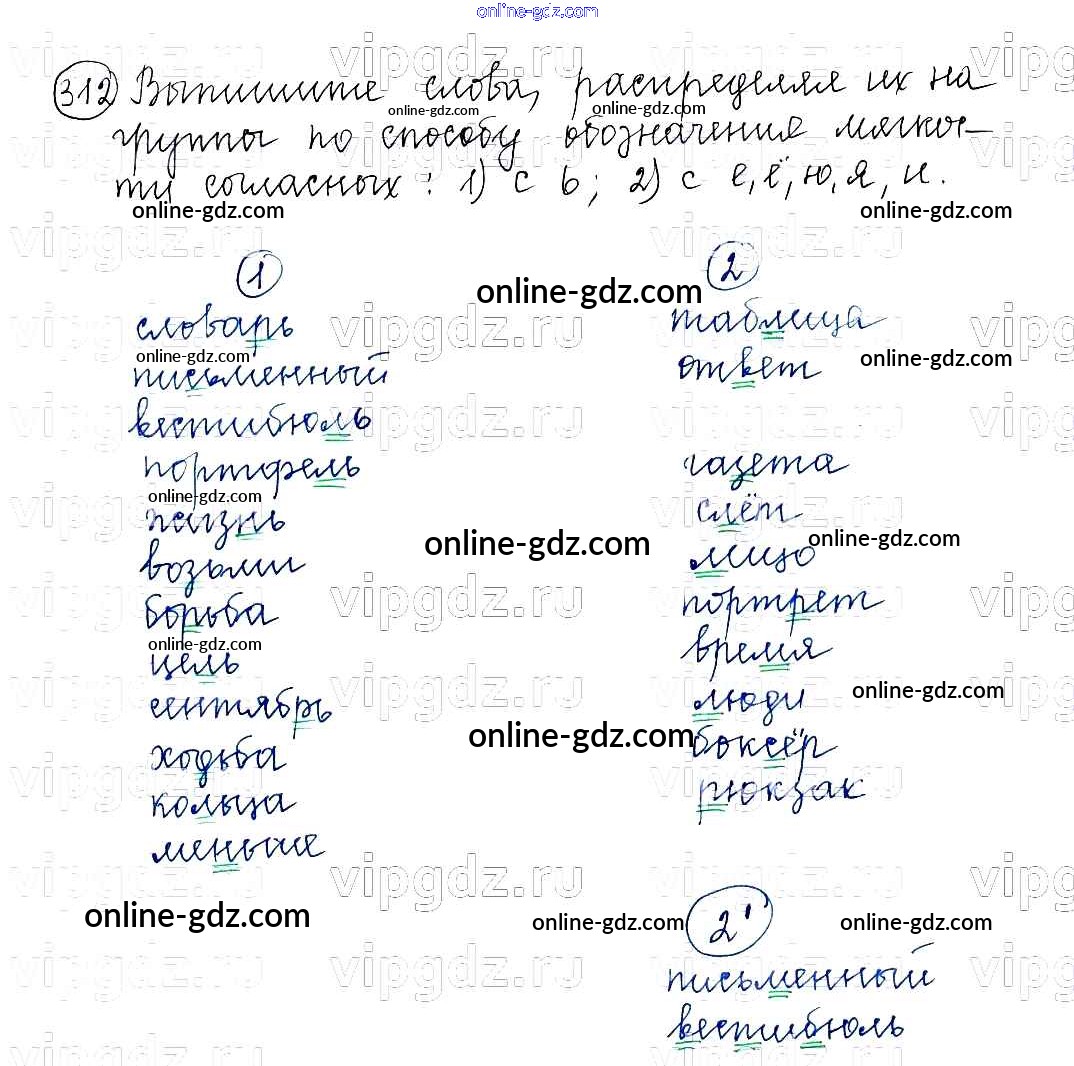 online-gdz.com
vipgdz.ru vipgdz.ru vipgdz.ru
312 Выпишите слова, распределяя их на
online-gdz.com online-gdz.com
группы по способу обозначения мягкос-
ти согласных: 1) с ь; 2) с е, ё, ю, я, и.
online-gdz.com online-gdz.com
vipgdz.ru vipgdz.ru
1 2
online-gdz.com
словарь таблица
online-gdz.com online-gdz.com
письменный ответ
вестибюль
портфель газета
online-gdz.com
жизнь слёт
online-gdz.com online-gdz.com
возьми лицо
борьба портрет
online-gdz.com
цель время
сентябрь люди
online-gdz.com
online-gdz.com
ходьба боксёр
кольца рюкзак
меньше
vipgdz.ru vipgdz.ru
online-gdz.com online-gdz.com 2' online-gdz.com
письменный
вестибюль